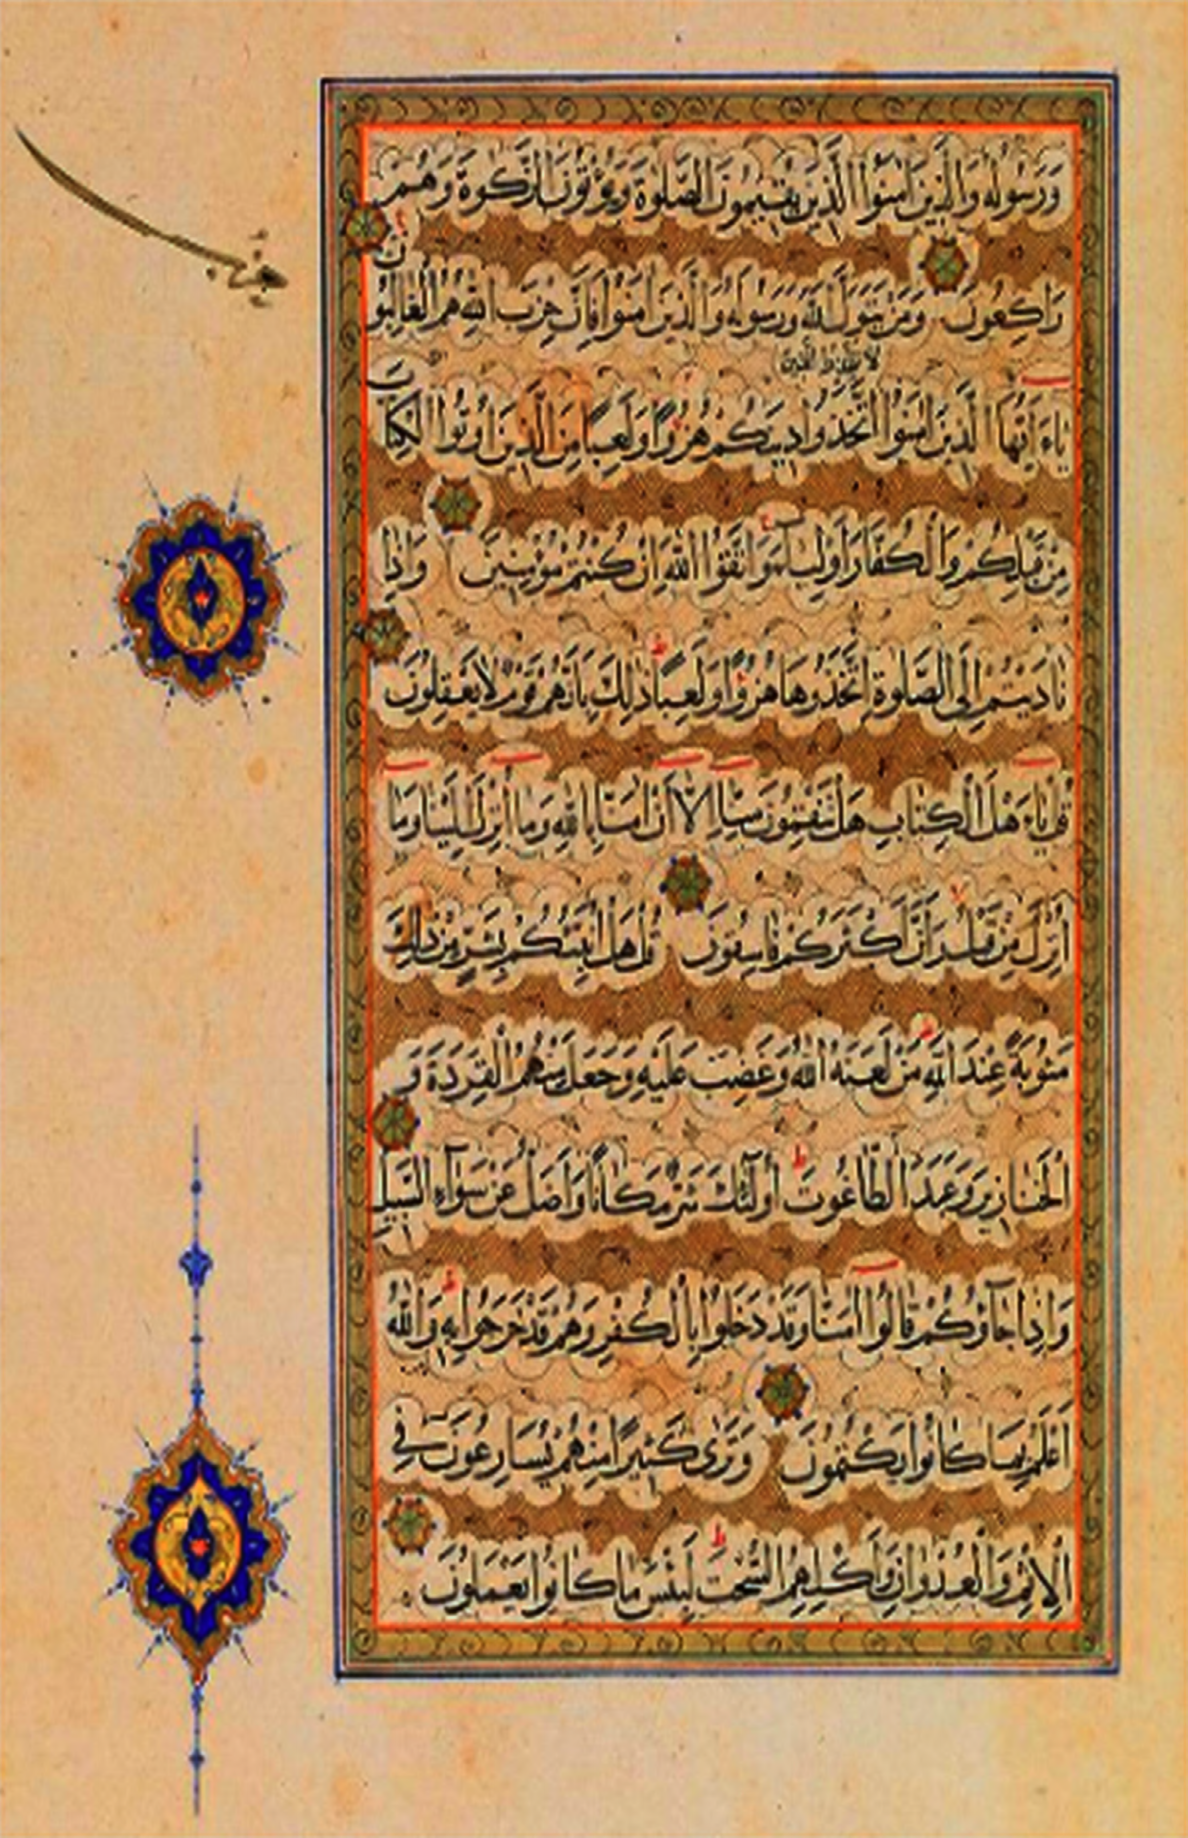 وَرَسُولُهُ وَالَّذِينَ اٰمَنُوا الَّذِينَ يُقِيمُونَ الصَّلٰوةَ وَيُؤْتُونَ الزَّكٰوةَ وَهُمْ
رَاكِعُونَ وَمَنْ يَتَوَلَّ اللّٰهَ وَرَسُولَهُ وَالَّذِينَ اٰمَنُوا فَاِنَّ حِزْبَ اللّٰهِ هُمُ الْغَالِبُونَ
لا تتخذوا الذين
يَاءَيُّهَا الَّذِينَ اٰمَنُوا اتَّخَذُوا دِينَكُمْ هُزُوًا وَلَعِبًا مِنَ الَّذِينَ اُوتُوا الْكِتَابَ
مِنْ قَبْلِكُمْ وَالْكُفَّارَ اَوْلِيَآءَ وَاتَّقُوا اللّٰهَ اِنْ كُنْتُمْ مُؤْمِنِينَ وَاِذَا
نَادَيْتُمْ اِلَى الصَّلٰوةِ اتَّخَذُوهَا هُزُوًا وَلَعِبًا ذٰلِكَ بِاَنَّهُمْ قَوْمٌ لَا يَعْقِلُونَ
قُلْ يَاءَهْلَ الْكِتَابِ هَلْ تَنْقِمُونَ مِنَّا اِلَّا اَنْ اٰمَنَّا بِاللّٰهِ وَمَا اُنْزِلَ اِلَيْنَا وَمَا
اُنْزِلَ مِنْ قَبْلُ وَاَنَّ اَكْثَرَكُمْ فَاسِقُونَ قُلْ هَلْ اُنَبِّئُكُمْ بِشَرٍّ مِنْ ذٰلِكَ
مَثُوبَةً عِنْدَ اللّٰهِ مَنْ لَعَنَهُ اللّٰهُ وَغَضِبَ عَلَيْهِ وَجَعَلَ مِنْهُمُ الْقِرَدَةَ وَ
الْخَنَازِيرَ وَعَبَدَ الطَّاغُوتَ اُولٰئِكَ شَرٌّ مَكَانًا وَاَضَلُّ عَنْ سَوَآءِ السَّبِيلِ
وَاِذَا جَآؤُكُمْ قَالُوا اٰمَنَّا وَقَدْ دَخَلُوا بِالْكُفْرِ وَهُمْ قَدْ خَرَجُوا بِهِ وَاللّٰهُ
اَعْلَمُ بِمَا كَانُوا يَكْتُمُونَ وَتَرٰى كَثِيرًا مِنْهُمْ يُسَارِعُونَ فِي
الْاِثْمِ وَالْعُدْوَانِ وَاَكْلِهِمُ السُّحْتَ لَبِئْسَ مَا كَانُوا يَعْمَلُونَ
حزب